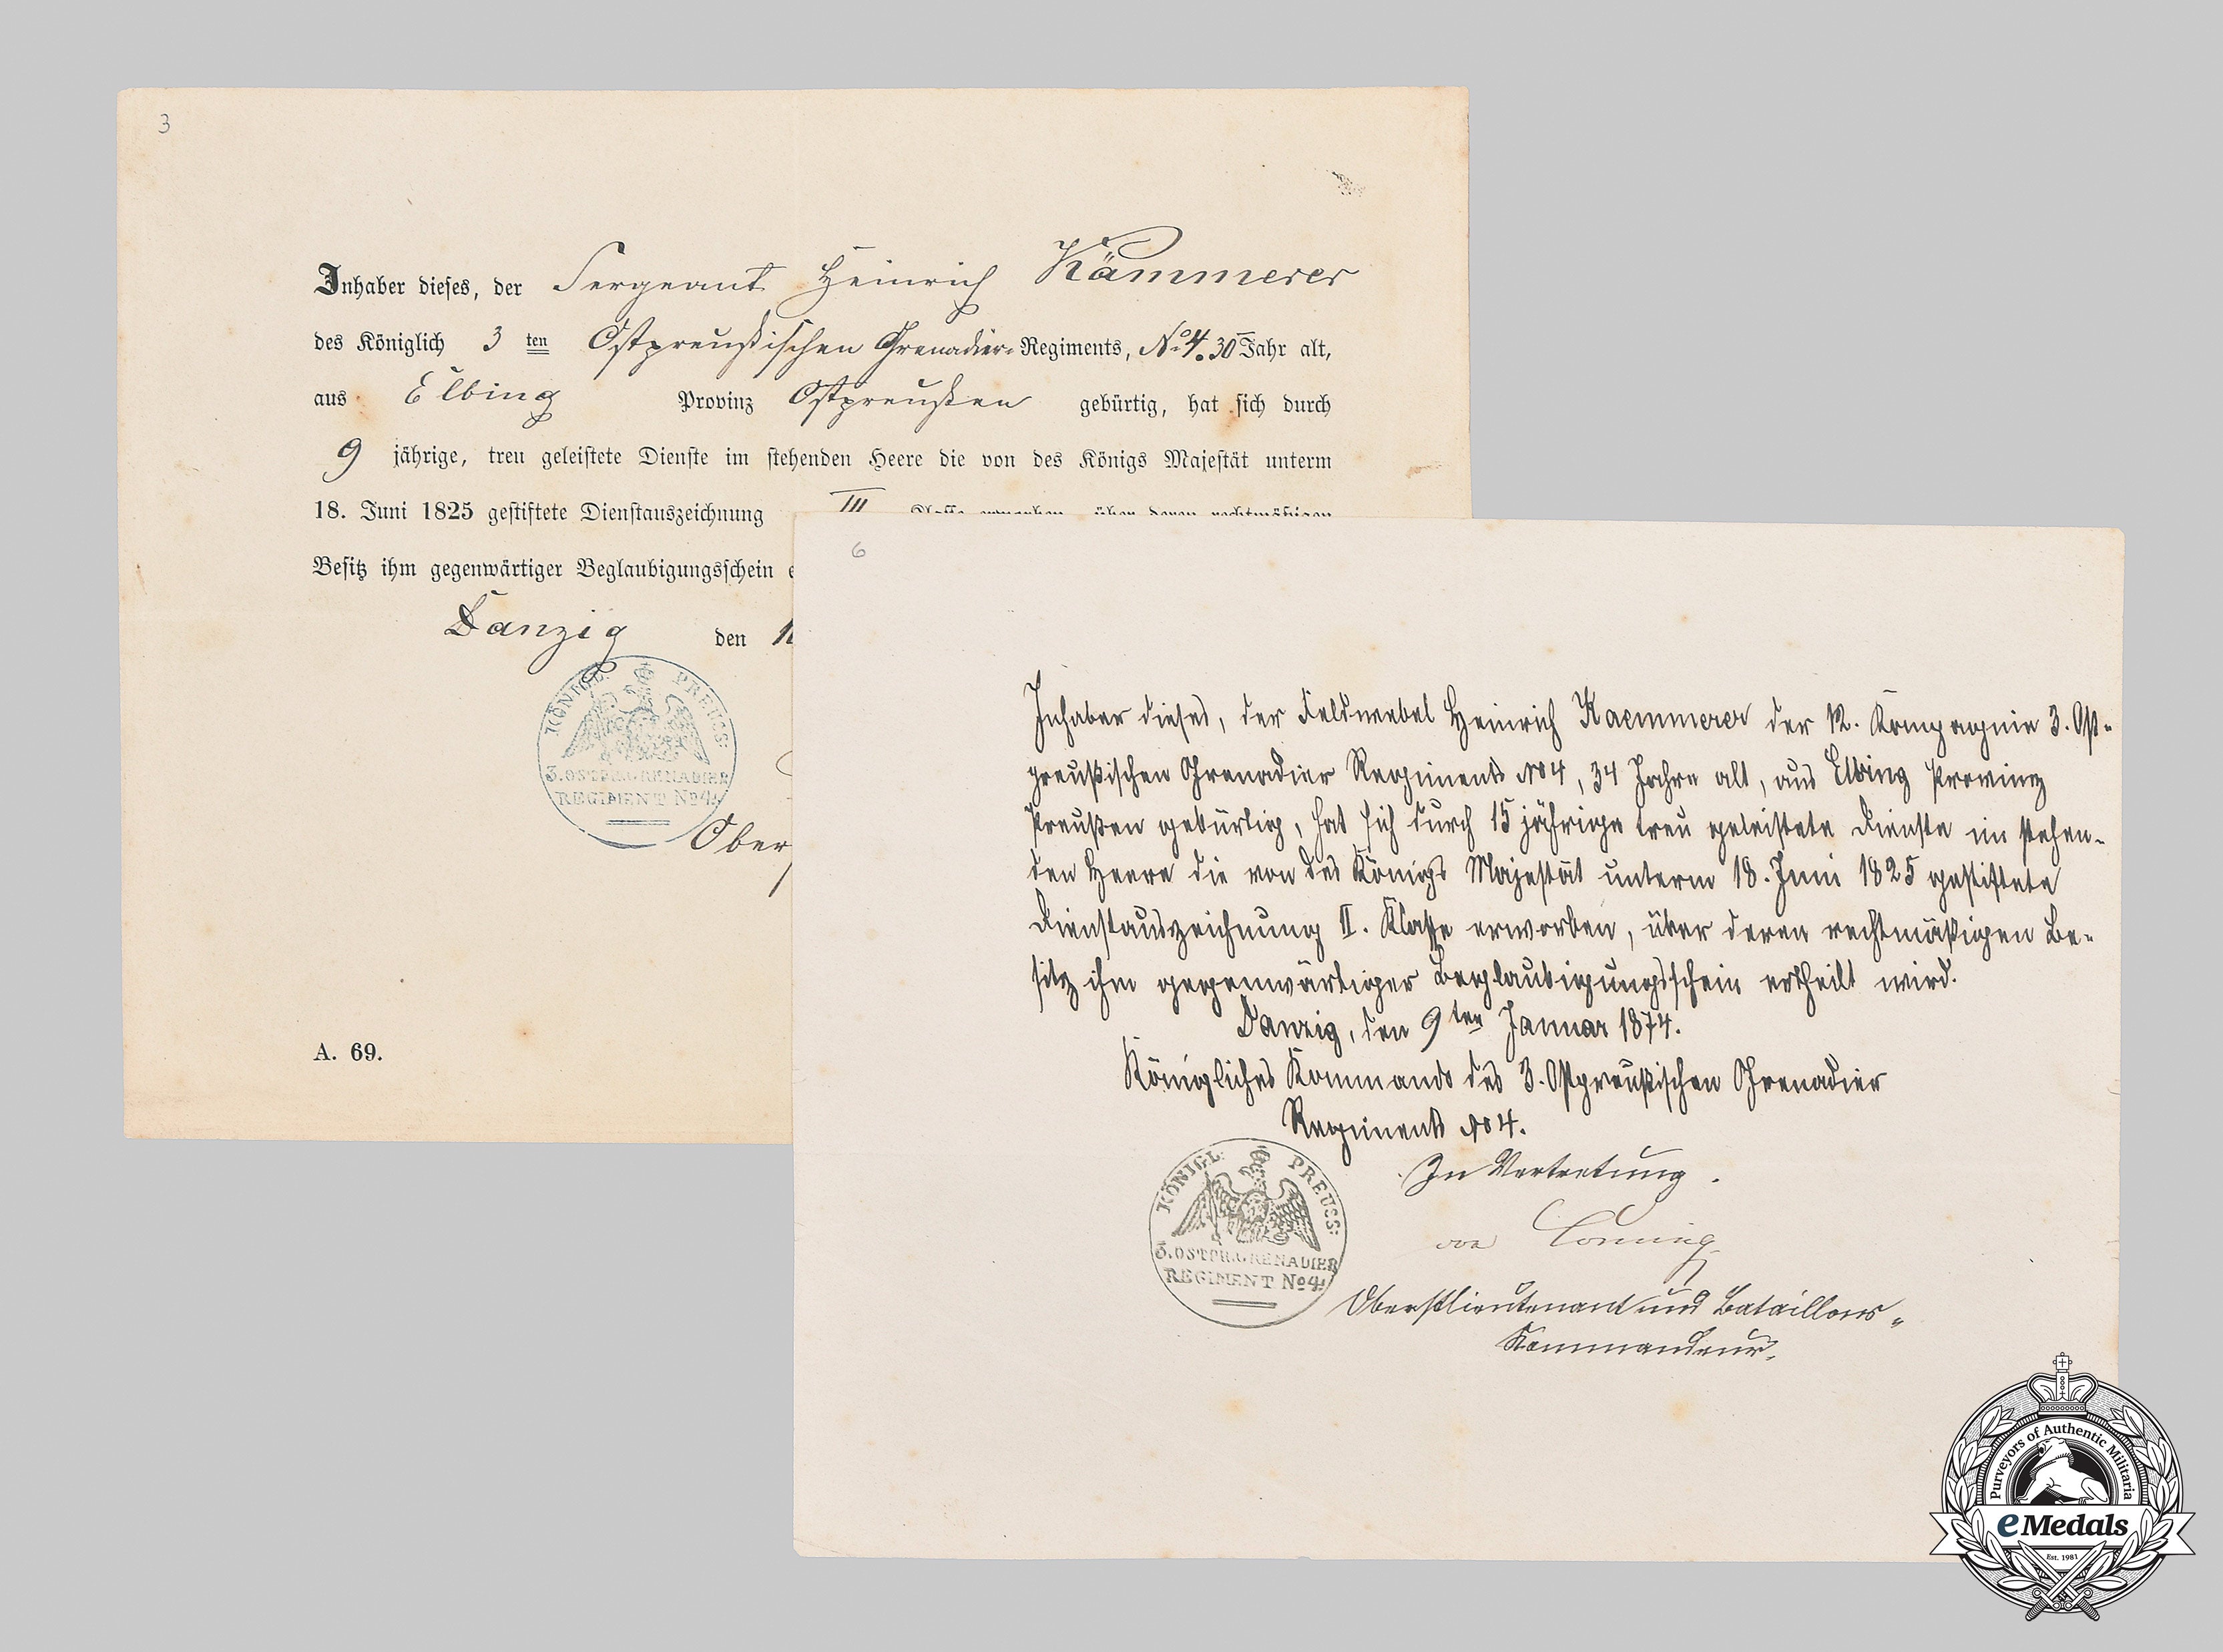 3
Inhaber dieses, der Sergeant Heinrich Kämmerer
des Königlich 3 ten Ostpreußischen Grenadier-Regiments, No 4. 30 Jahr alt,
aus Elbing Provinz Ostpreußen gebürtig, hat sich durch
9 jährige, treu geleistete Dienste im stehenden Heere die von des Königs Majestät unterm
18. Juni 1825 gestiftete Dienstauszeichnung III Klasse erworben, über deren rechtmäßigen
Besitz ihm gegenwärtiger Beglaubigungsschein
Danzig den
KÖNIGL. PREUSS:
3. OSTPR. GRENADIER
REGIMENT No 4.
Ober
A. 69.
6
Inhaber dieses, der Feldwebel Heinrich Kaemmerer der 12. Kompagnie 3. Ost-
preußischen Grenadier Regiments No 4, 34 Jahre alt, aus Elbing Provinz
Preußen gebürtig, hat sich durch 15 jährige treu geleistete Dienste im stehen-
den Heere die von des Königs Majestät unterm 18. Juni 1825 gestiftete
Dienstauszeichnung II. Klasse erworben, über deren rechtmäßigen Be-
sitz ihm gegenwärtiger Beglaubigungsschein ertheilt wird.
Danzig, den 9ten Januar 1874.
Königliches Kommando des 3. Ostpreußischen Grenadier
Regiments No 4.
In Vertretung.
von
Oberstlieutenant und Bataillons-
Kommandeur.
KÖNIGL. PREUSS:
3. OSTPR. GRENADIER
REGIMENT No 4.
Purveyors of Authentic Militaria
eMedals
Est. 1981